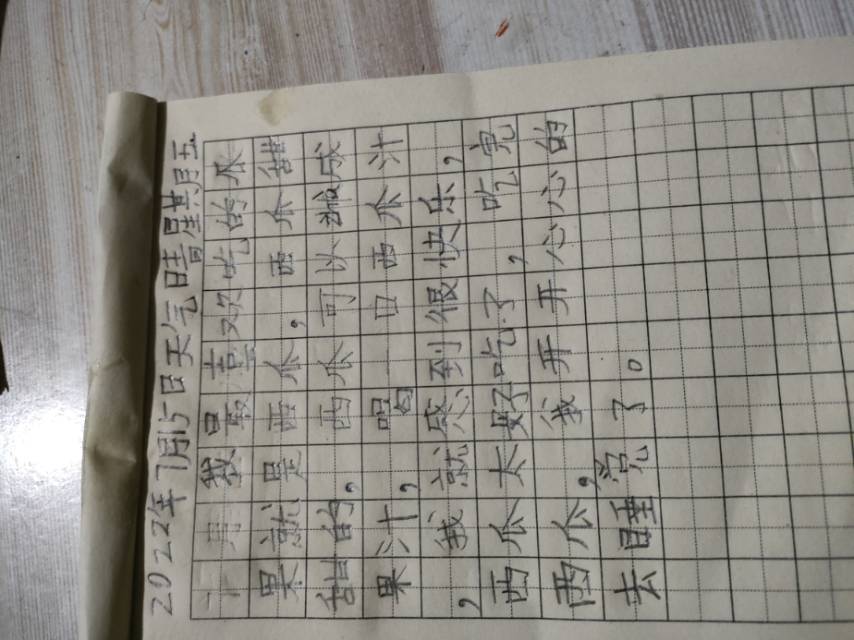 2022年7月15日天气晴星期五
我最喜欢吃的水
果就是西瓜,西瓜甜
甜的,西瓜可以榨成
果汁,喝一口西瓜汁
,我就感到很快乐,
西瓜太好吃了,吃完
西瓜,我开开心心的
去睡觉了。